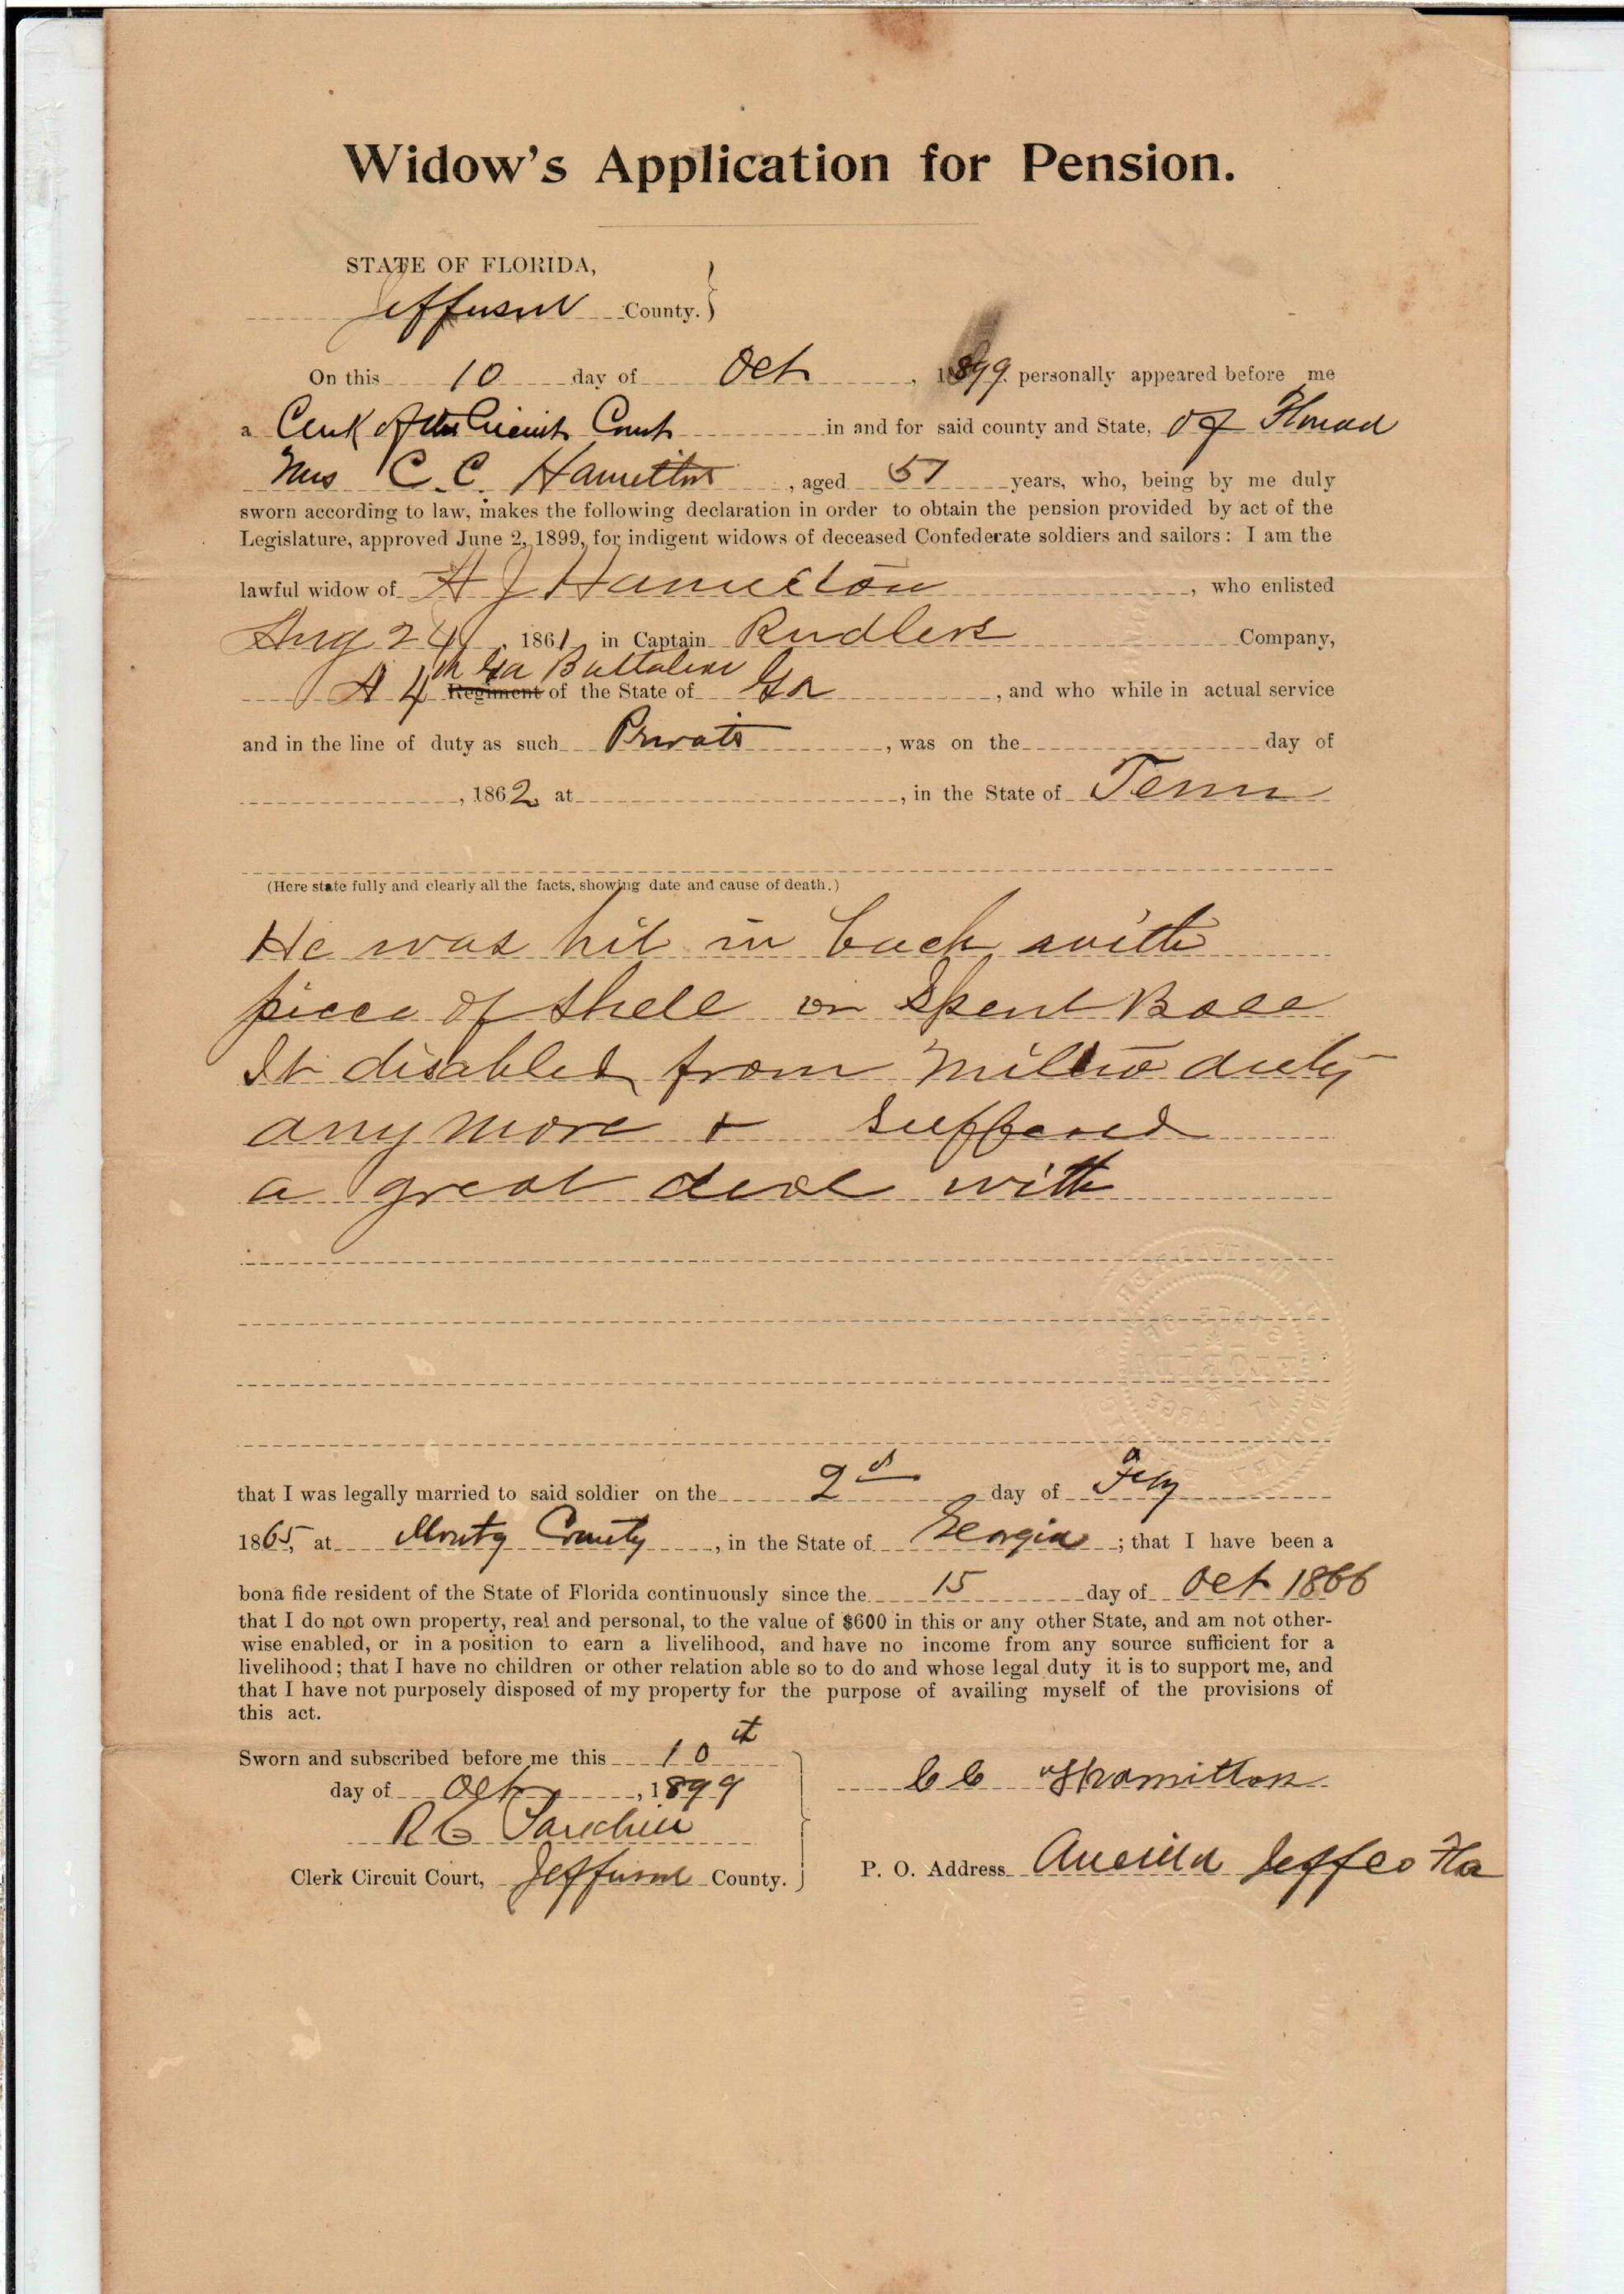 Widow's Application for Pension.
STATE OF FLORIDA,
Jefferson County. }
On this 10 day of Oct, 1899, personally appeared before me
a Clerk of the Circuit Court in and for said county and State, of Florida
Mrs C. C. Hamilton, aged 51 years, who, being by me duly
sworn according to law, makes the following declaration in order to obtain the pension provided by act of the
Legislature, approved June 2, 1899, for indigent widows of deceased Confederate soldiers and sailors: I am the
lawful widow of A J Hamilton, who enlisted
Aug 24, 1861, in Captain Rudlers Company,
th Ga Battalion
A 4 Regiment of the State of Ga, and who while in actual service
and in the line of duty as such Private, was on the day of
, 1862 at , in the State of Tenn
(Here state fully and clearly all the facts, showing date and cause of death.)
He was hit in back with
piece of shell or Spent Ball
It disabled from duty
any more + suffered
a great deal with
STATE OF
FLORIDA
AT LARGE
that I was legally married to said soldier on the 2d day of Feby
1865, at Montg County, in the State of Georgia; that I have been a
bona fide resident of the State of Florida continuously since the 15 day of Oct 1866
that I do not own property, real and personal, to the value of $600 in this or any other State, and am not other-
wise enabled, or in a position to earn a livelihood, and have no income from any source sufficient for a
livelihood; that I have no children or other relation able so to do and whose legal duty it is to support me, and
that I have not purposely disposed of my property for the purpose of availing myself of the provisions of
this act.
Sworn and subscribed before me this 10th
day of Oct, 1899
C C Hamilton
R C
Clerk Circuit Court, Jefferson County. }
P. O. Address Aucilla Jeff Co Fla